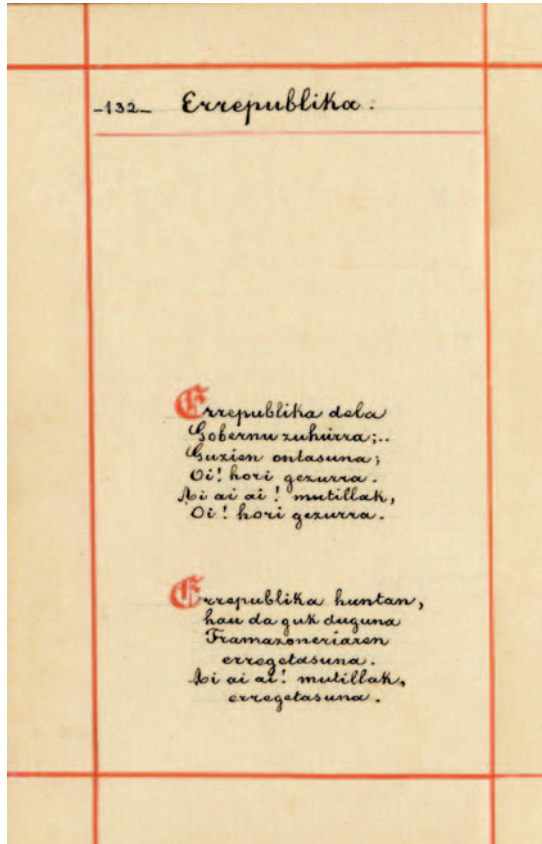 -132- Errepublika.
Errepublika dela
Gobernu zuhurra;..
Guzien ontasuna;
Oi! hori gezurra.
Ai ai ai! mutillak,
Oi! hori gezurra.
Errepublika huntan,
hau da guk duguna
Framazoneriaren
erregetasuna.
Ai ai ai! mutillak,
erregetasuna.